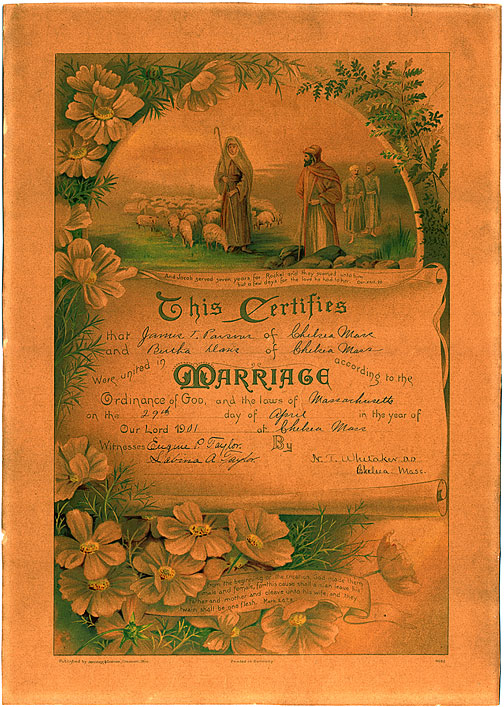 And Jacob served seven years for Rachel and they seemed unto him
but a few days for the love he had to her. Genesis 29
This Certifies
that James T. Parsons of Chelsea Mass
and Bertha Davis of Chelsea Mass
Were united in MARRIAGE according to the
Ordinance of GOD, and the laws of Massachusetts
on the 29th day of April in the year of
Our Lord 1901 at Chelsea Mass
Witnesses Eugene P. Taylor. By
Labina A. Taylor. N. T. Whitaker D.D
Chelsea. Mass.
From the beginning of the creation, God made them
male and female, for this cause shall a man leave his
father and mother and cleave unto his wife, and they
twain shall be one flesh. Mark
Published by
Printed in Germany